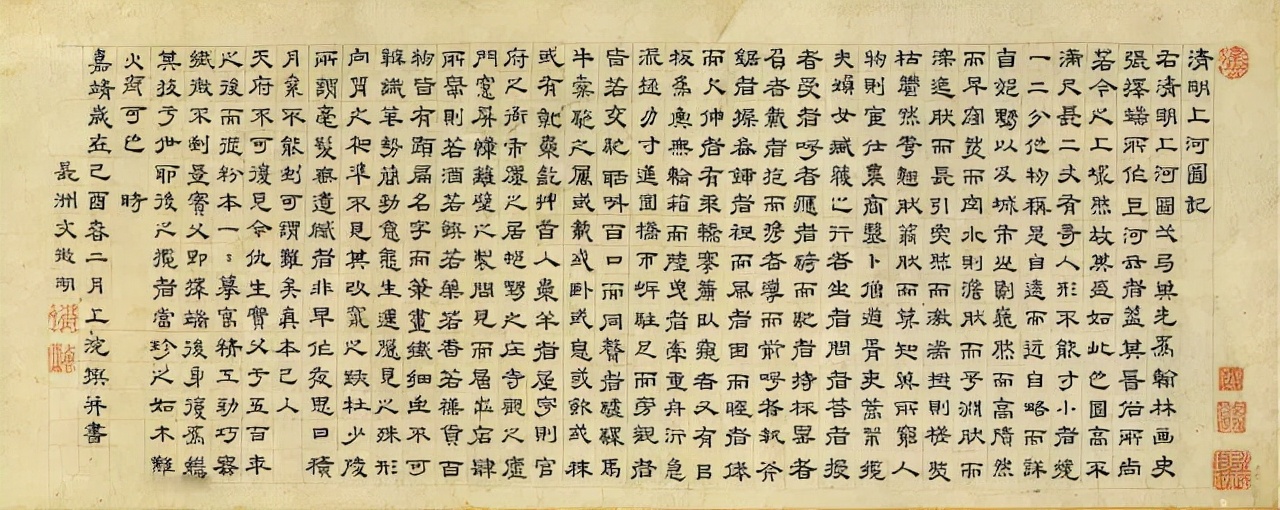 清明上河圖記
右清明上河圖弌為翰林画史
張擇端所作上河云者蓋其俗所尚
若今之上塚然故其盛如此也圖高不
滿尺長二丈有奇人形不能寸小者纔
一二分他物稱是自遠而近自略而詳
自郊野以及城市山則巍然而高隤然
而卑窪然而空水則澹然而平淵然而
深迤然而長引突然而激湍樹則槎然
枯鬱然秀翹然蓊然而莫知其所窮人
物則官仕農商醫卜僧道胥吏篙師纜
夫婦女臧獲之行者坐者問者答者授
者受者呼者應者騎而馳者持杯罌者
負者戴者抱而攜者導而前呼者執斧
鋸者操畚鍤者袒而風者困而睡者倦
而欠伸者有乘轎搴簾以窺者又有以
板為輿無輪箱而陸曳者牽重舟泝急
流極力寸進圜橋不斷駐足而旁觀者
皆若交馳聒叫百口而同聲者驢騾馬
牛橐駝之屬或載或臥或息或飲或秣
或有就橐齕艸首入橐半者屋宇則官
府之衙市廛之居郊野之庄寺觀之廬
門窗屏幛籬壁之製間見而層出店肆
所鬻則若酒若饌若藥若香若雜貨百
物皆有題扁名字而筆畫纖細至不可
辨識筆勢簡勁意態生隱見之殊形
向背之相準不見其改竄之跡杜少陵
所謂毫髮無遺憾者非早作夜思日積
月累不能到可謂難矣真本已入
天府不可復見今仇生實父于五百年
之後而從粉本一々摹寫精工勁巧
纖微不到實父即擇端後身後為繼
其技于世耶後之攬者當珍之如木難
火齊可也 時
嘉靖歲在己酉春二月上浣撰并書
長洲文徵明